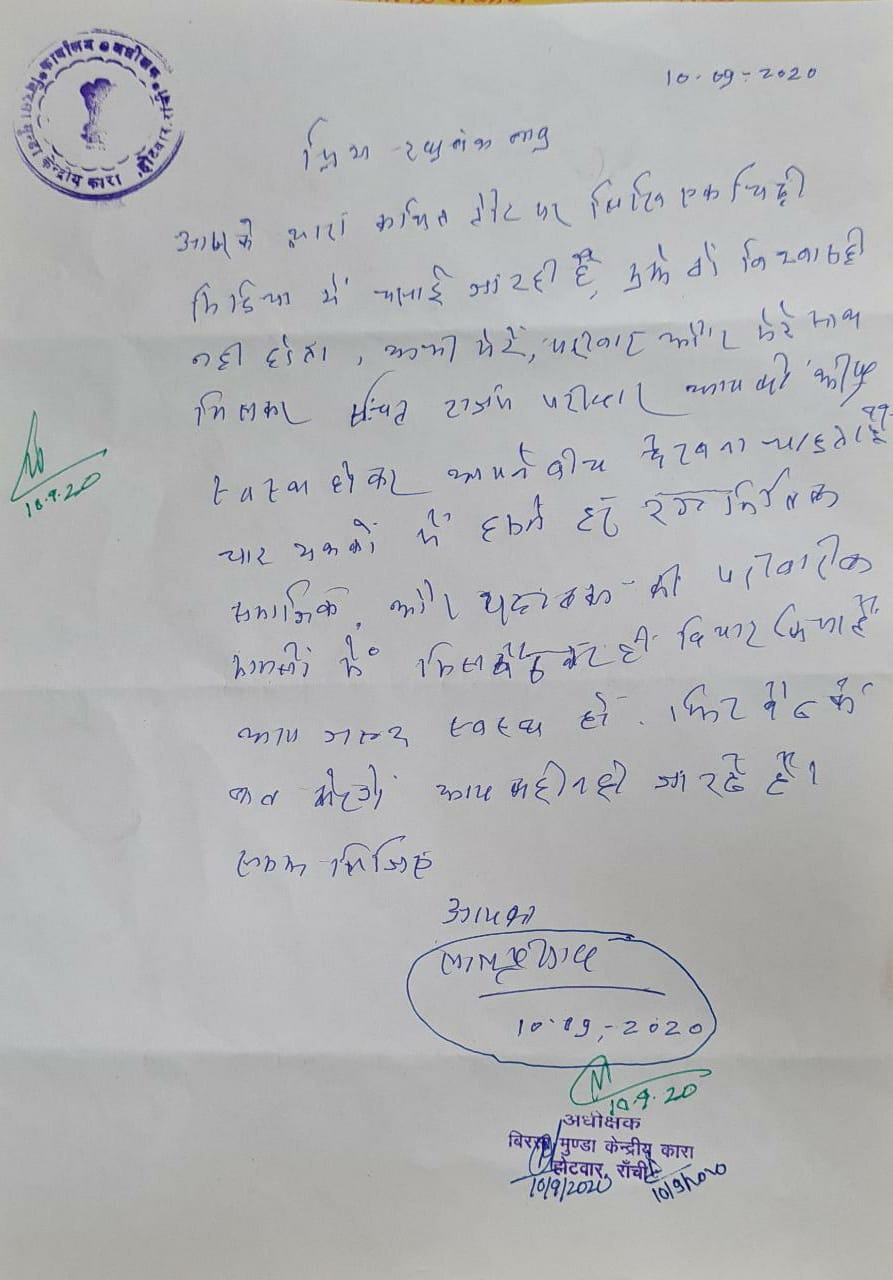 कार्यालय अधीक्षक
बिरसा मुण्डा केन्द्रीय कारा, होटवार, राँची
10-09-2020
प्रिय रघुवंश बाबू
आपके द्वारा कथित तौर पर लिखि एक चिट्ठी
मिडिया में चलाई जा रही है, मुझे तो विश्वास ही
नही होता, अभी मेरे, परीवार और मेरे साथ
मिलकर सिंचित राजद परीवार आपको शीघ्र
स्वस्थ होकर अपने बीच देखना चाहता है
चार दशकों में हमने हर
समाजिक, और यहाँ तक की परीवारीक
मामलों में मिल बैठकर ही विचार किया है
आप जल्द स्वस्थ हो. फिर बैठ के
बात करेंगे आप कही नही जा रहे है।
समझ लिजिए
आपका
लालू प्रसाद
10-09,-2020
10.9.20
10.9.20
अधीक्षक
बिरसा मुण्डा केन्द्रीय कारा
होटवार, राँची
10/9/2020
10/9/2020